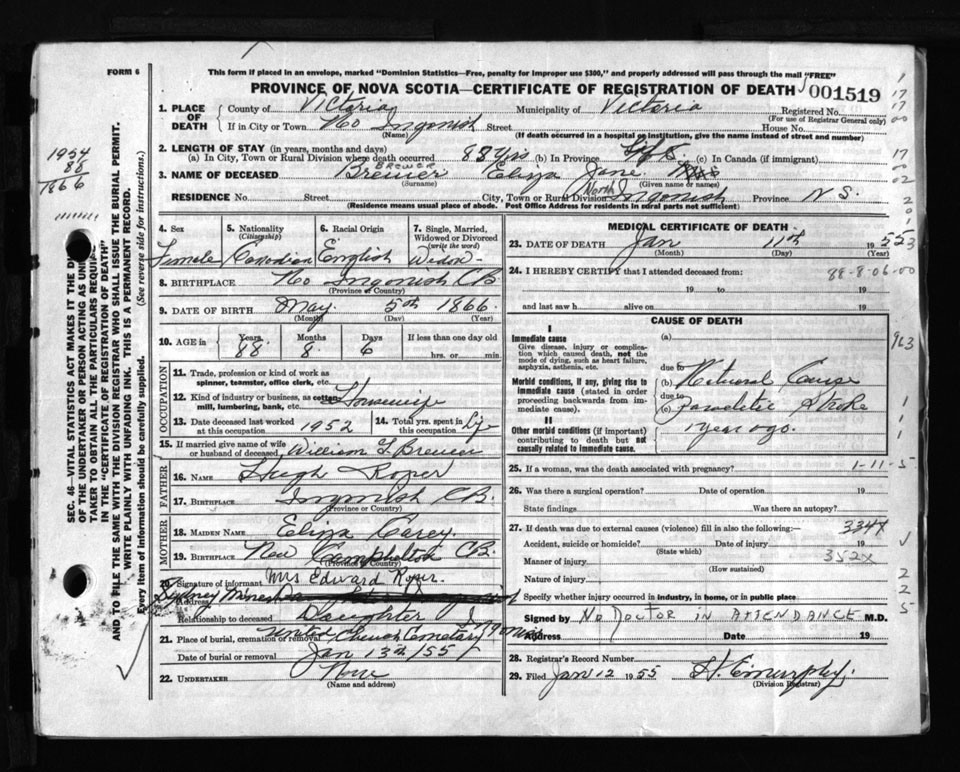 FORM 6
This form if placed in an envelope, marked "Dominion Statistics—Free, penalty for improper use $300," and properly addressed will pass through the mail "FREE"
PROVINCE OF NOVA SCOTIA—CERTIFICATE OF REGISTRATION OF DEATH 001519
1. PLACE OF DEATH
County of Victoria Municipality of Victoria Registered No.
(For use of Registrar General only)
If in City or Town No Ingonish Street House No.
(Name) (If death occurred in a hospital or institution, give the name instead of street and number)
2. LENGTH OF STAY (in years, months and days)
(a) In City, Town or Rural Division where death occurred 88 Yrs (b) In Province (c) In Canada (if immigrant)
BREWER
3. NAME OF DECEASED Brewer Eliza Jane
(Surname) (Given name or names)
RESIDENCE No. Street City, Town or Rural Division North Ingonish Province N S.
(Residence means usual place of abode. Post Office Address for residents in rural parts not sufficient)
1954
88
1866
SEC. 46—VITAL STATISTICS ACT MAKES IT THE D
OF THE UNDERTAKER OR PERSON ACTING AS UN
TAKER TO OBTAIN ALL THE PARTICULARS REQUI
IN THE "CERTIFICATE OF REGISTRATION OF DEATH"
AND TO FILE THE SAME WITH THE DIVISION REGISTRAR WHO SHALL ISSUE THE BURIAL PERMIT.
WRITE PLAINLY WITH UNFADING INK. THIS IS A PERMANENT RECORD.
Every item of information should be carefully supplied. (See reverse side for instructions.)
4. Sex
Female
5. Nationality
(Citizenship)
Canadian
6. Racial Origin
English
7. Single, Married, Widowed or Divorced
(write the word)
Widow
8. BIRTHPLACE No Ingonish CB
(Province or Country)
9. DATE OF BIRTH May 5th 1866.
(Month) (Day) (Year)
10. AGE in Years Months Days If less than one day
88 8 6 hrs. or min.
OCCUPATION
11. Trade, profession or kind of work as
spinner, teamster, office clerk, etc.
12. Kind of industry or business, as cotton
mill, lumbering, bank, etc. Housewife
13. Date deceased last worked
at this occupation 1952
14. Total yrs. spent in
this occupation Life
15. If married give name of wife
or husband of deceased William J Brewer
FATHER
16. NAME Hugh Roper
17. BIRTHPLACE Ingonish CB.
(Province or Country)
MOTHER
18. MAIDEN NAME Eliza Carey.
19. BIRTHPLACE New Campbelton CB.
(Province or Country)
20. Signature of informant Mrs Edward Roper.
Address Sydney Mines
Relationship to deceased Daughter
21. Place of burial, cremation or removal United Church Cemetary
Date of burial or removal Jan 13th/55
22. UNDERTAKER None
(Name and address)
MEDICAL CERTIFICATE OF DEATH
23. DATE OF DEATH Jan 11th 1955
(Month) (Day) (Year)
24. I HEREBY CERTIFY that I attended deceased from:
88-8-06-00
19 to 19
and last saw h alive on 19
CAUSE OF DEATH
I
Immediate cause
Give disease, injury or complication which caused death, not the mode of dying, such as heart failure, asphyxia, asthenia, etc.
(a)
due to
Morbid conditions, if any, giving rise to immediate cause (stated in order proceeding backwards from immediate cause)
(b) Natural Cause
due to
(c) Paraletic Stroke
1 year ago.
II
Other morbid conditions (if important) contributing to death but not causally related to immediate cause.
963
25. If a woman, was the death associated with pregnancy? 1-11-5
26. Was there a surgical operation? Date of operation 19
State findings Was there an autopsy?
27. If death was due to external causes (violence) fill in also the following:— 334X
Accident, suicide or homicide? Date of injury 19
(State which)
Manner of injury 352X
(How sustained)
Nature of injury
Specify whether injury occurred in industry, in home, or in public place
Signed by NO DOCTOR IN ATTENDANCE M.D.
Address Date 19
28. Registrar's Record Number
29. Filed Jan 12 1955 H. E. Murphy.
(Division Registrar)